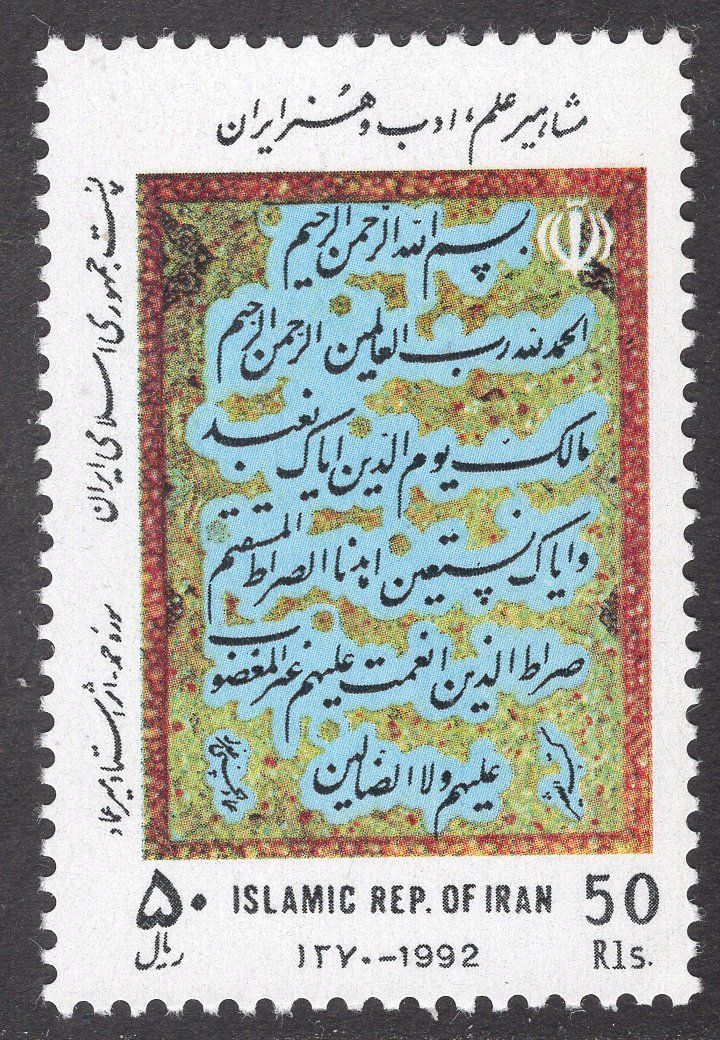 مشاهیر علم، ادب و هنر ایران
پست جمهوری اسلامی ایران
سوره حمد - اثر استاد میرعماد
بسم الله الرحمن الرحیم
الحمد لله رب العالمین الرحمن الرحیم
مالک یوم الدین ایاک نعبد
وایاک نستعین اهدنا الصراط المستقیم
صراط الذین انعمت علیهم غیر المغضوب
علیهم ولا الضالین
۵۰ ISLAMIC REP. OF IRAN 50
ریال ۱۳۷۰-1992 Rls.